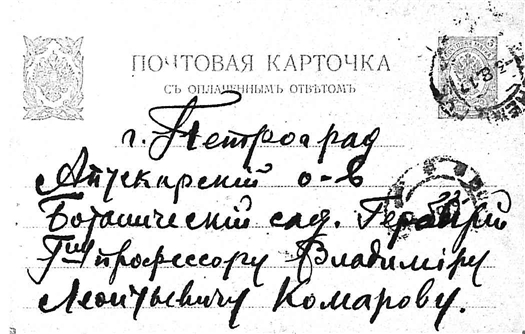 ПОЧТОВАЯ КАРТОЧКА
СЪ ОПЛАЧЕННЫМЪ ОТВѢТОМЪ
г. Петроград
Аптекарскій о-в
Ботаническій сад. Гербарій
Гну профессору Владиміру
Леонтьевичу Комарову.